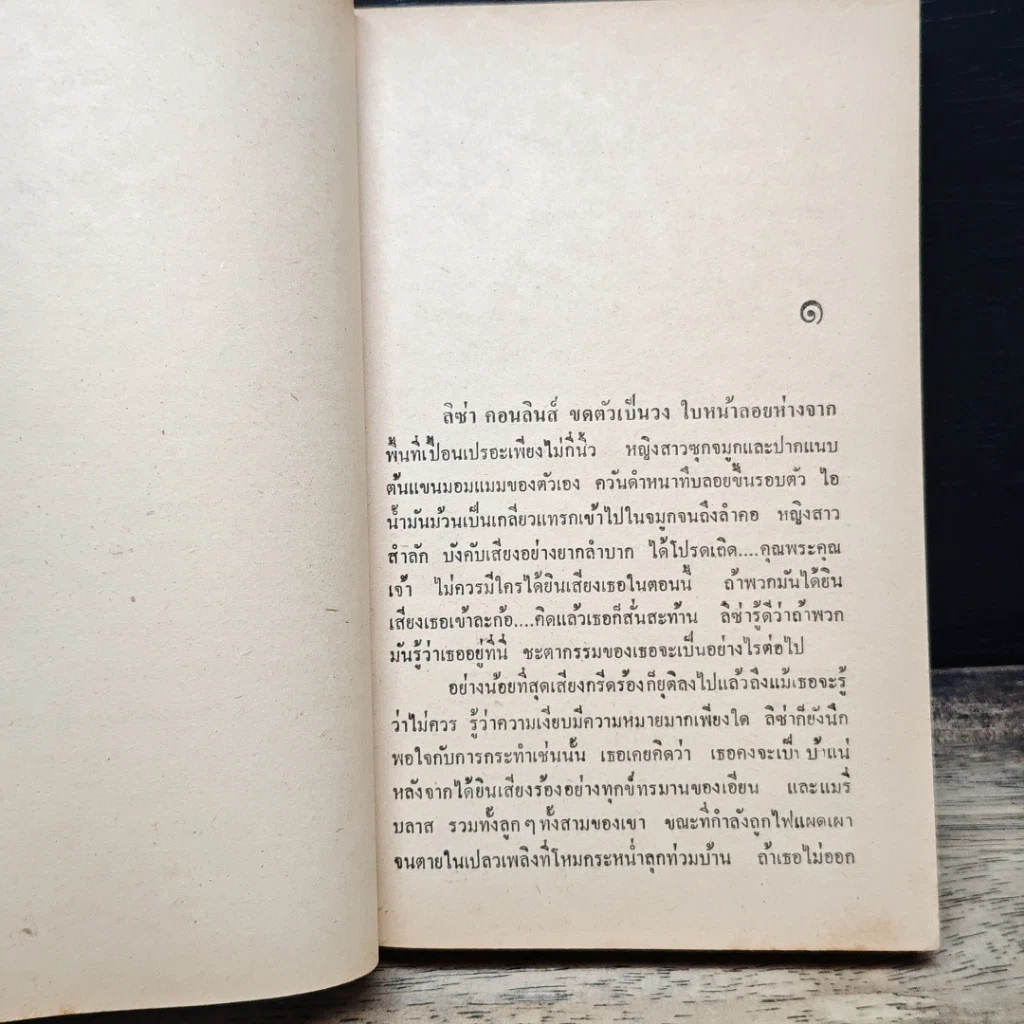 ๑
ลิซ่า คอนลินส์ ขดตัวเป็นวง ใบหน้าลอยห่างจาก
พื้นที่เปื้อนเปรอะเพียงไม่กี่นิ้ว หญิงสาวซุกจมูกและปากแนบ
ต้นแขนมอมแมมของตัวเอง ควันดำหนาทึบลอยขึ้นรอบตัว ไอ
น้ำมันม้วนเป็นเกลียวแทรกเข้าไปในจมูกจนถึงลำคอ หญิงสาว
สำลัก บังคับเสียงอย่างยากลำบาก ได้โปรดเถิด....คุณพระคุณ
เจ้า ไม่ควรมีใครได้ยินเสียงเธอในตอนนี้ ถ้าพวกมันได้ยิน
เสียงเธอเข้าละก้อ....คิดแล้วเธอก็สั่นสะท้าน ลิซ่ารู้ดีว่าถ้าพวก
มันรู้ว่าเธออยู่ที่นี่ ชะตากรรมของเธอจะเป็นอย่างไรต่อไป
อย่างน้อยที่สุดเสียงกรีดร้องก็ยุติลงไปแล้วถึงแม้เธอจะรู้
ว่าไม่ควร รู้ว่าความเงียบมีความหมายมากเพียงใด ลิซ่าก็ยังนึก
พอใจกับการกระทำเช่นนั้น เธอเคยคิดว่า เธอคงจะเป็นบ้าแน่
หลังจากได้ยินเสียงร้องอย่างทุกข์ทรมานของเอียน และแมรี่
บลาส รวมทั้งลูกๆทั้งสามของเขา ขณะที่กำลังถูกไฟแผดเผา
จนตายในเปลวเพลิงที่โหมกระหน่ำลุกท่วมบ้าน ถ้าเธอไม่ออก